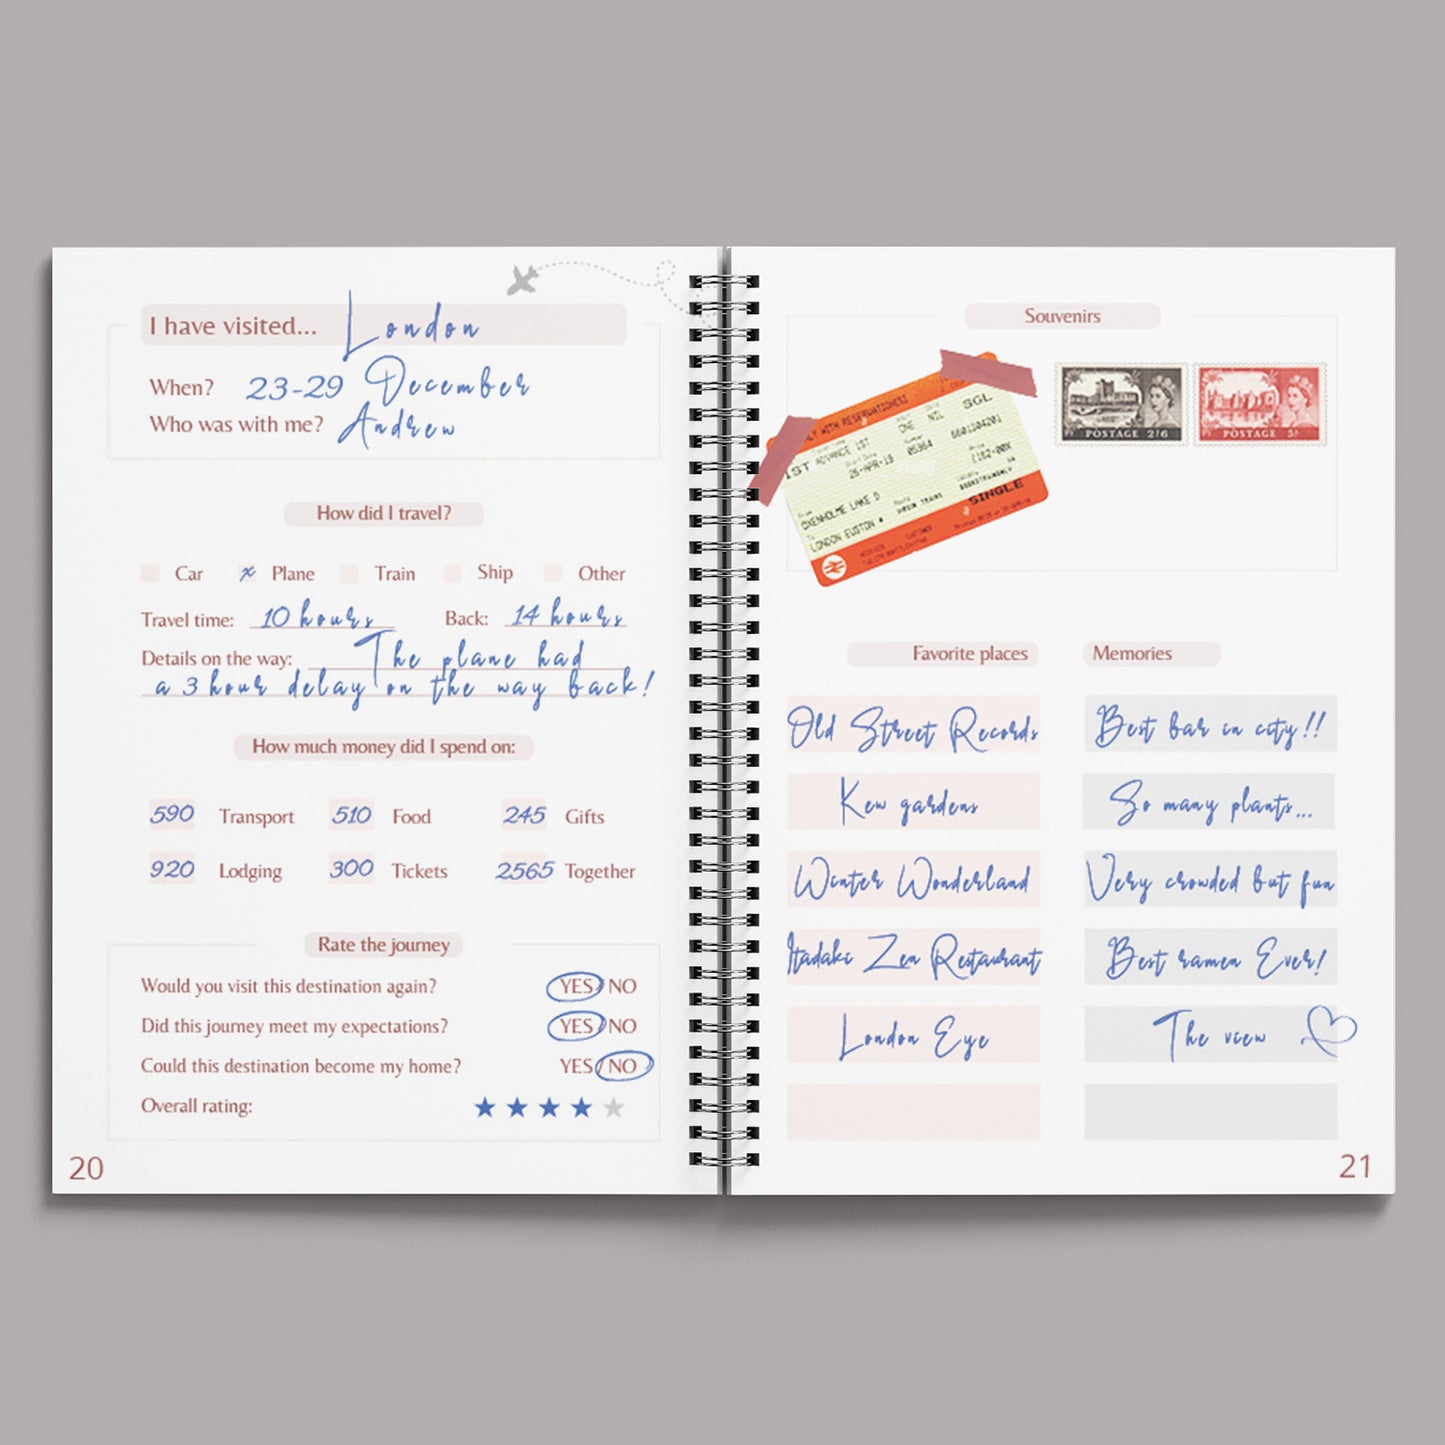 I have visited... London
When? 23-29 December
Who was with me? Andrew
How did I travel?
Car x Plane Train Ship Other
Travel time: 10 hours Back: 14 hours
Details on the way: The plane had
a 3 hour delay on the way back!
How much money did I spend on:
590 Transport 510 Food 245 Gifts
920 Lodging 300 Tickets 2565 Together
Rate the journey
Would you visit this destination again? YES/NO
Did this journey meet my expectations? YES/NO
Could this destination become my home? YES/NO
Overall rating:
20
Souvenirs
WITH RESERVATION(S)
SGL
1ST ADVANCE 1ST ONE NIL
25-APR-19 05964 6601304201
OXENHOLME LAKE D £162-00X
LONDON EUSTON SINGLE
POSTAGE 2/6
POSTAGE 5/-
Favorite places Memories
Old Street Records Best bar in city!!
Kew gardens So many plants...
Winter Wonderland Very crowded but fun
Itadaki Zen Restaurant Best ramen Ever!
London Eye The view
21